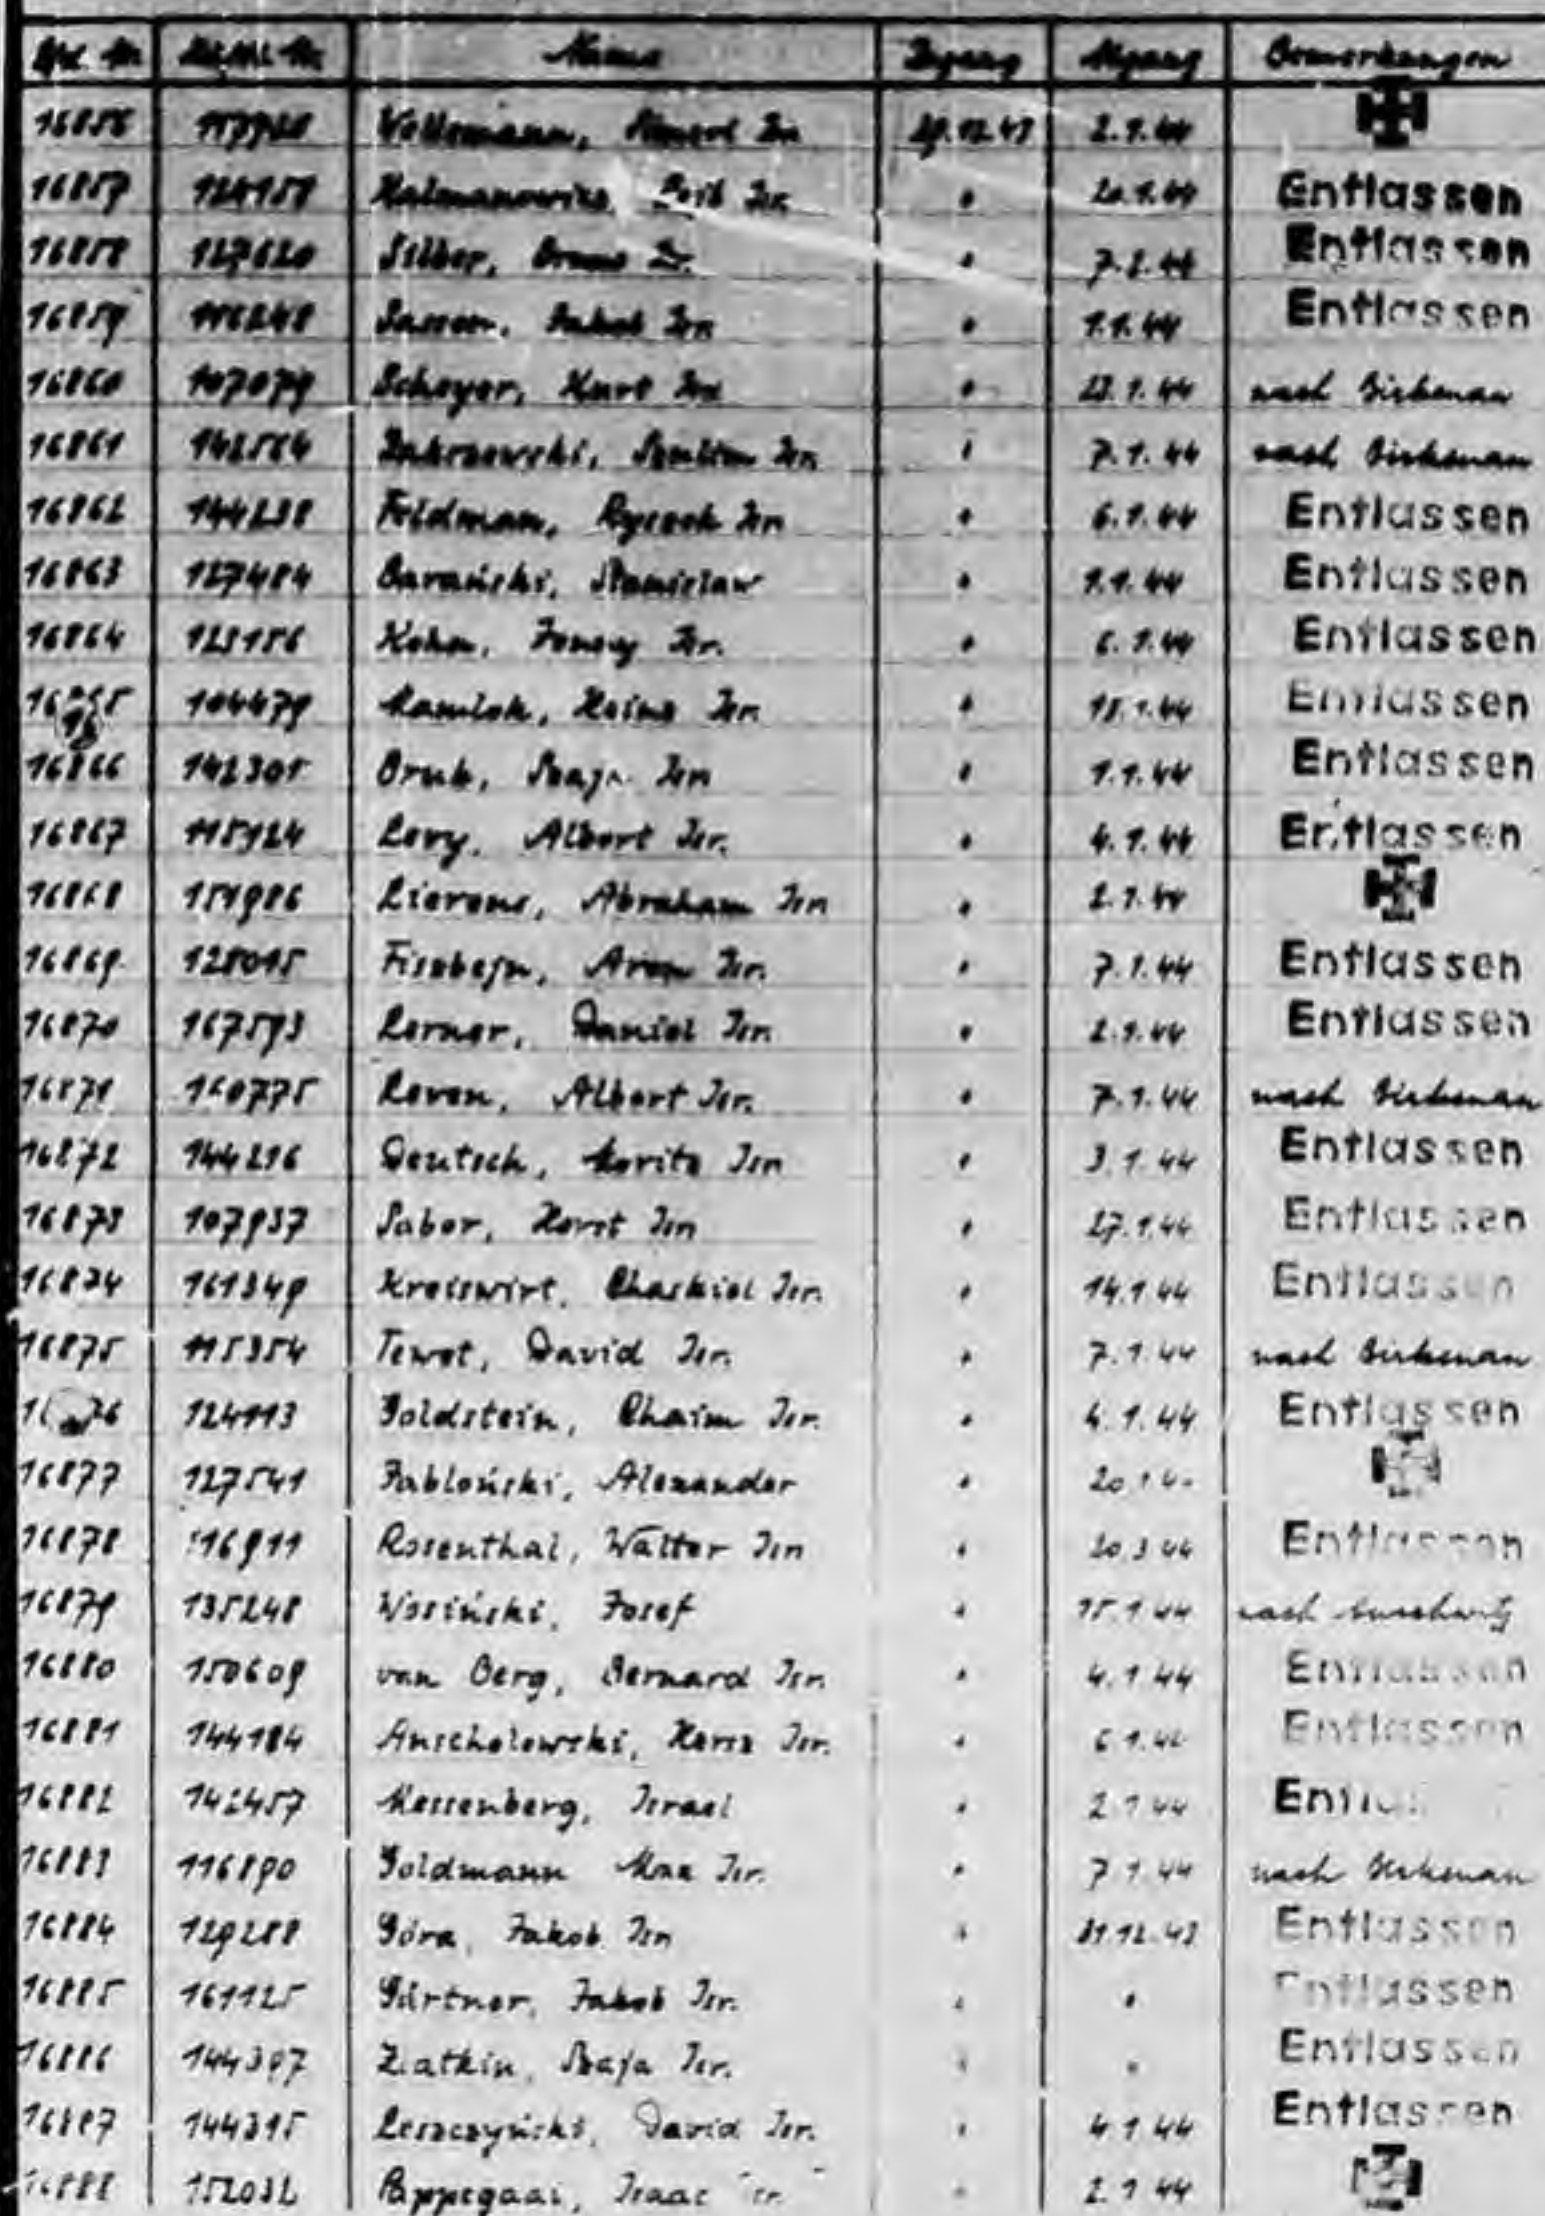 Lfd. Nr. Häftl. Nr. Name Zugang Abgang Bemerkungen
16856 Isr. 29.12.43 2.1.44
16857 124158 Kalmanowicz, Leib Isr. " 20.1.44 Entlassen
16858 127620 Silber, Bruno Isr. " 7.2.44 Entlassen
16859 116248 Jakob Isr. " 1.1.44 Entlassen
16860 107079 Scheyer, Kurt Isr. " nach Birkenau
16861 142564 Zakrzewski, Isr. " 7.1.44 nach Birkenau
16862 144238 Feldman, Isr. " 6.1.44 Entlassen
16863 127484 Barański, Stanislaw " 1.1.44 Entlassen
16864 Isr. " 6.1.44 Entlassen
104479 Mamlok, Heinz Isr. " 18.1.44 Entlassen
16866 142305 Bruk, Isr. " 1.1.44 Entlassen
16867 115924 Levy, Albert Isr. " 4.1.44 Entlassen
16868 151986 Lierens, Abraham Isr. " 2.1.44
16869 128015 Fiszbejn, Aron Isr. " 7.1.44 Entlassen
16870 167593 Lerner, Daniel Isr. " 2.1.44 Entlassen
16871 160775 Leven, Albert Isr. " 7.1.44 nach Birkenau
16872 144216 Deutsch, Moritz Isr. " 3.1.44 Entlassen
16873 107937 Sabor, Horst Isr. " 27.1.44 Entlassen
16874 161349 Kreiswirt, Chaskiel Isr. " 14.1.44 Entlassen
16875 115354 Tewet, David Isr. " 7.1.44 nach Birkenau
124113 Goldstein, Chaim Isr. " 4.1.44 Entlassen
16877 127541 Jabloński, Alexander "
16878 116911 Rosenthal, Walter Isr. " 20.3.44 Entlassen
16879 135248 Wosiński, Josef " 15.1.44 nach Auschwitz
16880 150609 van Berg, Bernard Isr. " 4.1.44 Entlassen
16881 144184 Anscholowski, Hersz Isr. " 6.1.44 Entlassen
16882 142457 Messenberg, Israel " 2.1.44
16883 116890 Goldmann Max Isr. " 7.1.44 nach Birkenau
16884 129288 Góra, Jakob Isr. " 31.12.43 Entlassen
16885 161125 Gärtner, Jakob Isr. " " Entlassen
16886 144397 Zlatkin, Szaja Isr. " " Entlassen
16887 144315 Leszczyński, David Isr. " 4.1.44 Entlassen
16888 152032 Pappegaai, Isaac Isr. " 2.1.44